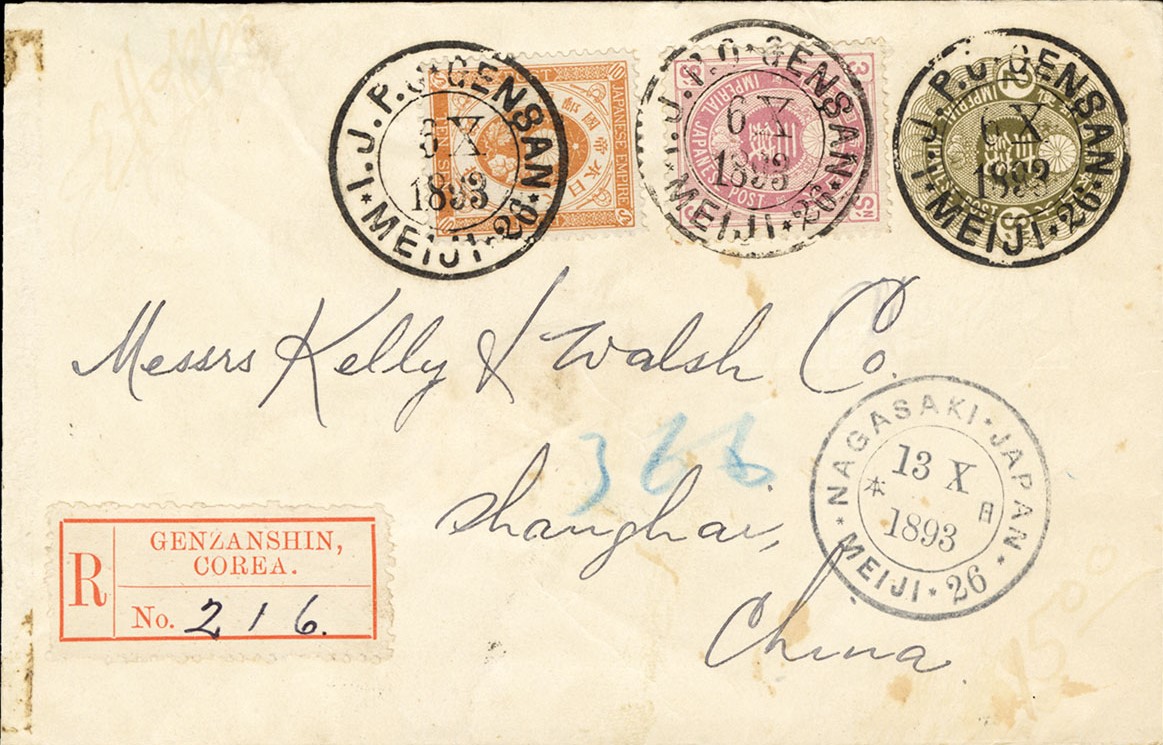 I.J.P.O·GENSAN
6 X
1893
*MEIJI·26*
JAPANESE EMPIRE
10 SN
TEN SEN
大日本帝國郵
I.J.P.O·GENSAN
6 X
1893
*MEIJI·26*
3 SN
IMPERIAL JAPANESE POST
I.J.P.O·GENSAN
6 X
1893
*MEIJI·26*
2
IMPERIAL JAPANESE POST
SN
Messrs Kelly & Walsh Co.
366
Shanghai,
China
NAGASAKI·JAPAN
13 X
本 日
1893
*MEIJI*26*
R
GENZANSHIN,
COREA.
No. 216.